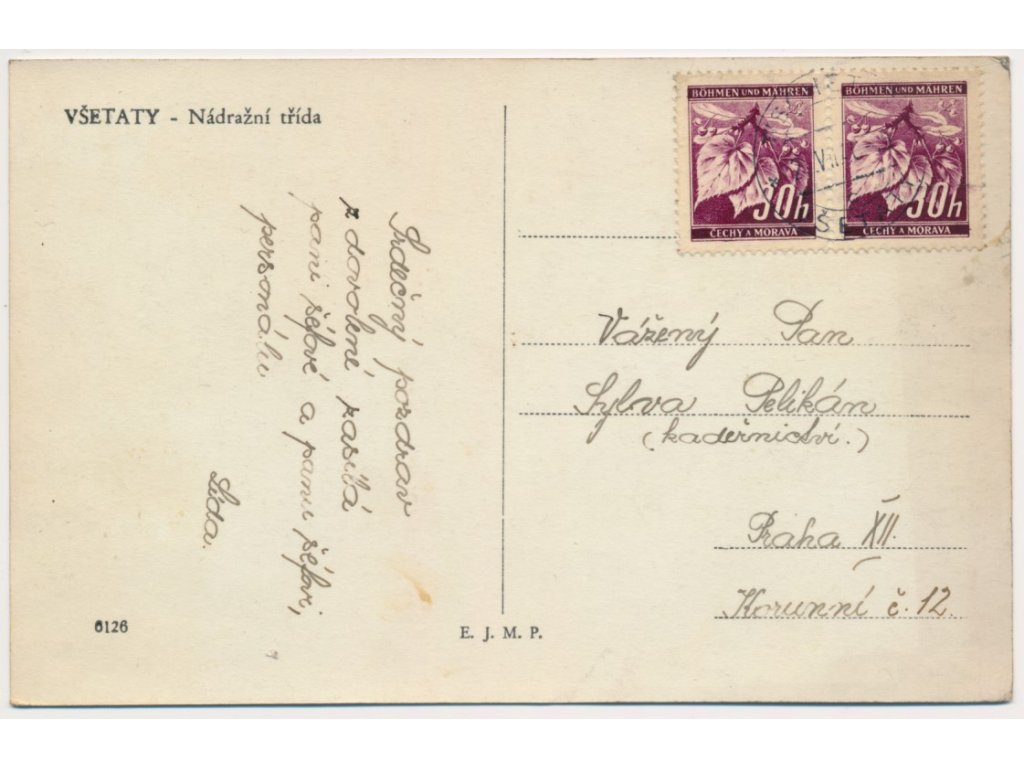 VŠETATY - Nádražní třída
Srdečný pozdrav
z dovolené zasílá
paní šéfové a panu šéfovi,
personálu
Lída.
6126
E. J. M. P.
BÖHMEN UND MÄHREN
30h
ČECHY A MORAVA
BÖHMEN UND MÄHREN
30h
ČECHY A MORAVA
Vážený Pan
Sylva Pelikán
(kadeřnictví.)
Praha XII.
Korunní č. 12.